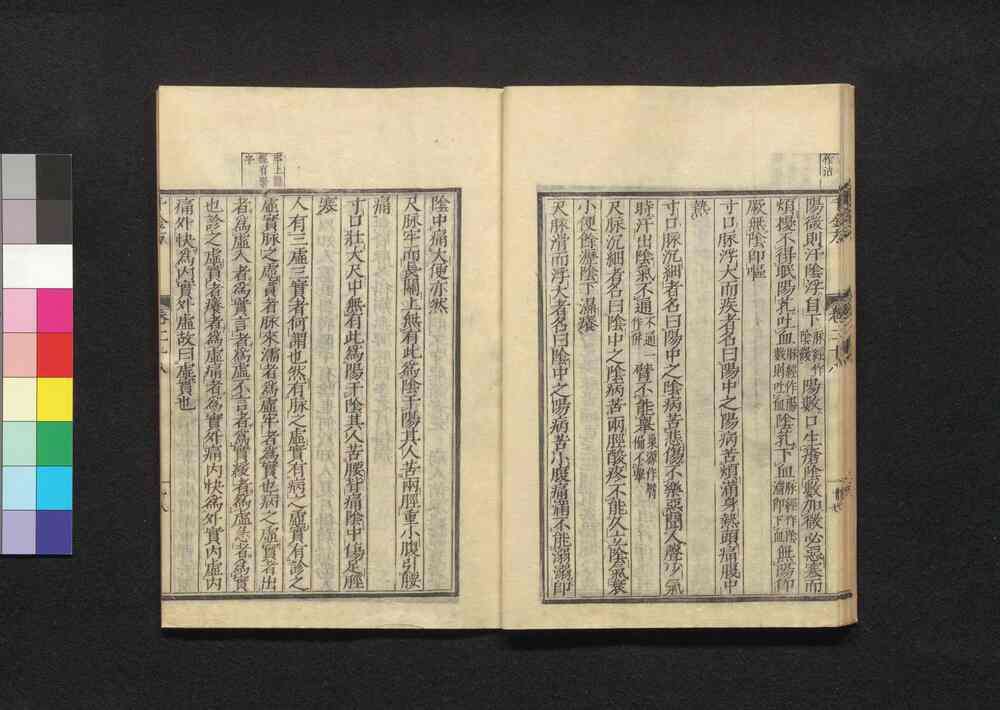 作沽
陽微則汗陰浮自下脉經作陰緩陽數口生瘡陰數加微必惡寒而
煩擾不得眠陽芤吐血脉經作陽數則吐血陰芤下血脉經作陰濇即下血無陽即
厥無陰即嘔
寸口脉浮大而疾者名曰陽中之陽病苦煩滿身熱頭痛腹中
熱
寸口脉沉細者名曰陽中之陰病苦悲傷不樂惡聞人聲少氣
時汗出陰氣不通不通一作併臂不能舉巢源作臂偏不舉
尺脉沉細者名曰陰中之陰病苦兩脛酸疼不能久立陰氣衰
小便餘瀝陰下濕癢
尺脉滑而浮大者名曰陰中之陽病苦小腹痛滿不能溺溺即
陰中痛大便亦然
尺脉牢而長關上無有此爲陰干陽其人苦兩脛重小腹引腰
痛
寸口壯大尺中無有此爲陽干陰其人苦腰背痛陰中傷足脛
寒
人有三虛三實者何謂也然有脉之虛實有病之虛實有診之
虛實脉之虛實者脉來濡者爲虛牢者爲實也病之虛實者出
者爲虛入者爲實言者爲虛不言者爲實緩者爲虛急者爲實
也診之虛實者癢者爲虛痛者爲實外痛内快爲外實内虛内
痛外快爲内實外虛故曰虛實也